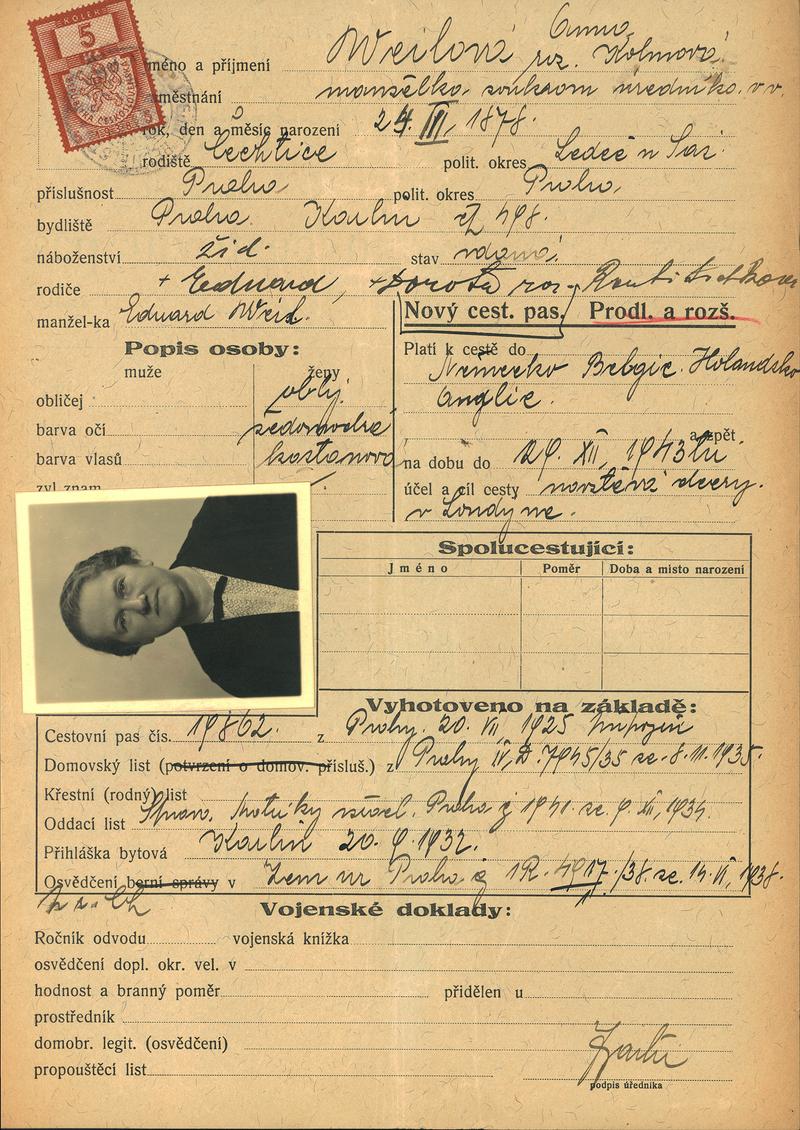 KOLEK
5
jméno a příjmení Weilová Anna roz. Kolmová
zaměstnání manželka soukrom úředníka v v.
rok, den a měsíc narození 24. III. 1878.
rodiště Čechtice polit. okres Ledeč n Sáz
příslušnost Praha polit. okres Praha
bydliště Praha Karlín čp 498.
náboženství žid. stav vdaná
rodiče + Eduard, + Dorota roz.
manžel-ka Eduard Weil.
Nový cest. pas. Prodl. a rozš.
Popis osoby:
muže ženy
obličej oblý
barva očí šedomodré
barva vlasů kaštanová
zvl znam
Platí k cestě do Německo Belgie. Holandsko
Anglie.
a zpět
na dobu do 29. XII. 1943
účel a cíl cesty návštěva dcery.
v Londýně.
Spolucestující:
Jméno Poměr Doba a místo narození
Vyhotoveno na základě:
Cestovní pas čís. 19862. z Prahy. 20. VII. 1925
Domovský list (potvrzení o domov. přísluš.) z Prahy IV, D. 7945/35 ze 8. 11. 1935.
Křestní (rodný) list
Oddací list Správ. Matriky izrael. Praha č 1941 ze 9. XII. 1934.
Přihláška bytová Karlín 20. 9. 1932.
Osvědčení berní správy v Zem úr Praha č 1R. 4917/38 ze 14. VI. 1938.
Vojenské doklady:
Ročník odvodu vojenská knížka
osvědčení dopl. okr. vel. v
hodnost a branný poměr přidělen u
prostředník
domobr. legit. (osvědčení)
propouštěcí list
podpis úředníka